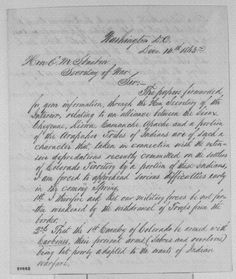 Washington D.C.
Dec. 14th 1863
Hon. E. M. Stanton
Secretary of War
Sir:
The papers forwarded
for your information, through the Hon. Secretary of the
Interior, relating to an alliance between the Sioux
Cheyenne, Kiowa, Camanche, Apache and a portion
of the Arapahoe Tribes of Indians are of such a
character that, taken in connection with the exten-
sive depredations recently committed on the settlers
of Colorado Territory by a portion of these Indians,
I am forced to apprehend serious difficulties early
in the coming spring.
1st I therefore ask that our military forces be not fur-
ther weakened by the withdrawal of Troops from the
border.
2nd That the 1st Cavalry of Colorado be armed with
Carbines, their present arms (Sabres and revolvers)
being but poorly adapted to the wants of Indian
warfare.